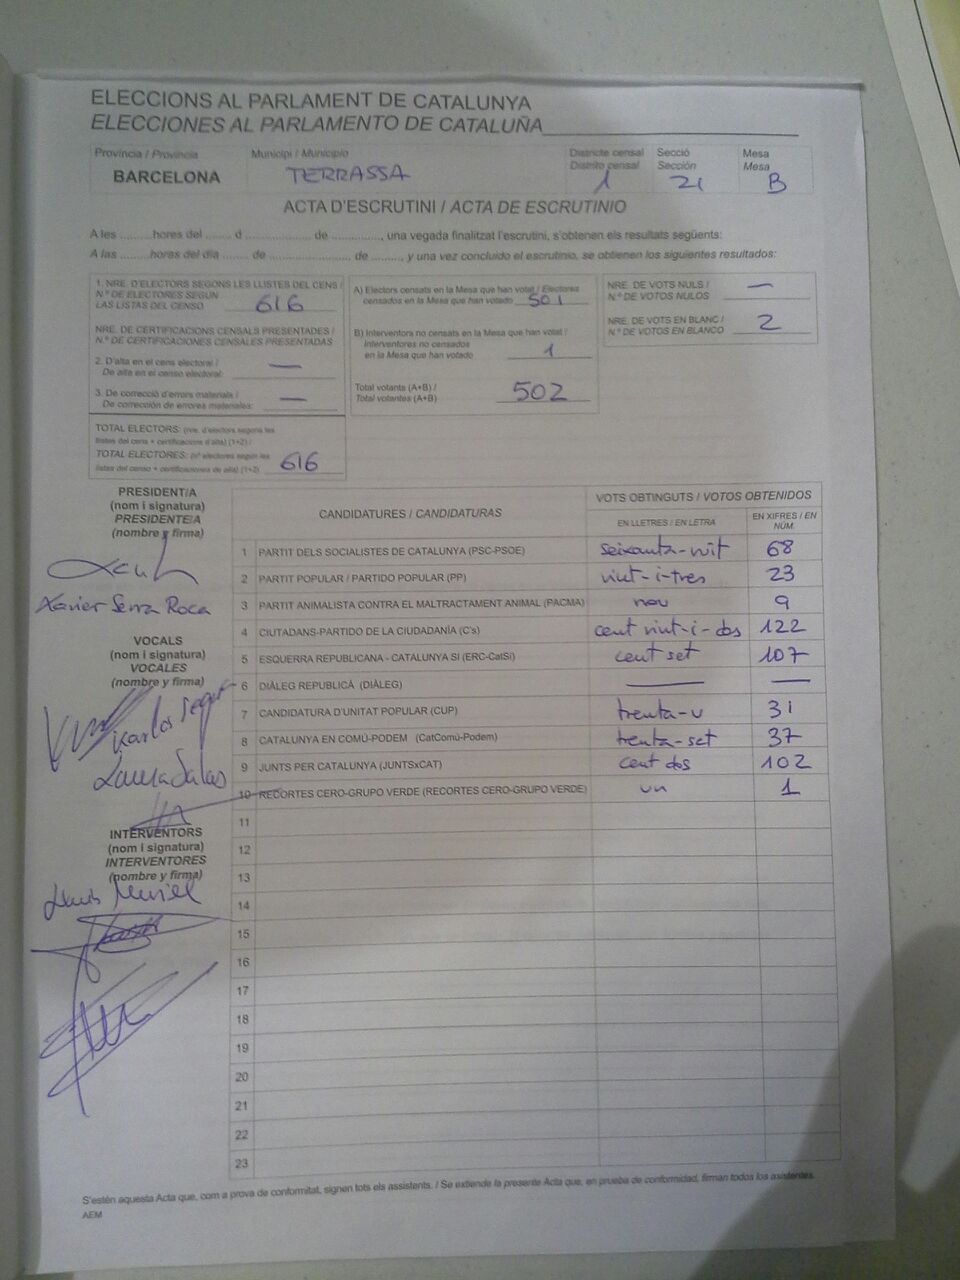 ELECCIONS AL PARLAMENT DE CATALUNYA
ELECCIONES AL PARLAMENTO DE CATALUÑA
Província / Provincia Municipi / Municipio Districte censal Secció Mesa
Distrito censal Sección Mesa
BARCELONA TERRASSA 1 21 B
ACTA D'ESCRUTINI / ACTA DE ESCRUTINIO
A les .........hores del ....... d ................. de ............., una vegada finalitzat l'escrutini, s'obtenen els resultats següents:
A las .........horas del día ....... de ....................... de ........, y una vez concluido el escrutinio, se obtienen los siguientes resultados:
1. NRE. D'ELECTORS SEGONS LES LLISTES DEL CENS /
N.º DE ELECTORES SEGÚN
LAS LISTAS DEL CENSO 616
NRE. DE CERTIFICACIONS CENSALS PRESENTADES /
N.º DE CERTIFICACIONES CENSALES PRESENTADAS
2. D'alta en el cens electoral /
De alta en el censo electoral: —
3. De correcció d'errors materials /
De corrección de errores materiales: —
TOTAL ELECTORS: (nre. d'electors segons les
llistes del cens + certificacions d'alta) (1+2) /
TOTAL ELECTORES: (nº electores según las
listas del censo + certificaciones de alta) (1+2) 616
A) Electors censats en la Mesa que han votat / Electores
censados en la Mesa que han votado 501
B) Interventors no censats en la Mesa que han votat /
Interventores no censados
en la Mesa que han votado 1
Total votants (A+B) /
Total votantes (A+B) 502
NRE. DE VOTS NULS /
N.º DE VOTOS NULOS —
NRE. DE VOTS EN BLANC /
N.º DE VOTOS EN BLANCO 2
PRESIDENT/A
(nom i signatura)
PRESIDENTE/A
(nombre y firma)
Xavier Serra Roca
VOCALS
(nom i signatura)
VOCALES
(nombre y firma)
Karlos
Laura Salas
INTERVENTORS
(nom i signatura)
INTERVENTORES
(nombre y firma)
CANDIDATURES / CANDIDATURAS VOTS OBTINGUTS / VOTOS OBTENIDOS
EN LLETRES / EN LETRA EN XIFRES / EN NÚM.
1 PARTIT DELS SOCIALISTES DE CATALUNYA (PSC-PSOE) seixanta-vuit 68
2 PARTIT POPULAR / PARTIDO POPULAR (PP) vint-i-tres 23
3 PARTIT ANIMALISTA CONTRA EL MALTRACTAMENT ANIMAL (PACMA) nou 9
4 CIUTADANS-PARTIDO DE LA CIUDADANÍA (C's) cent vint-i-dos 122
5 ESQUERRA REPUBLICANA - CATALUNYA SI (ERC-CatSí) cent set 107
6 DIÀLEG REPUBLICÀ (DIÀLEG) — —
7 CANDIDATURA D'UNITAT POPULAR (CUP) trenta-u 31
8 CATALUNYA EN COMÚ-PODEM (CatComú-Podem) trenta-set 37
9 JUNTS PER CATALUNYA (JUNTSxCAT) cent dos 102
10 RECORTES CERO-GRUPO VERDE (RECORTES CERO-GRUPO VERDE) un 1
11
12
13
14
15
16
17
18
19
20
21
22
23
S'estén aquesta Acta que, com a prova de conformitat, signen tots els assistents. / Se extiende la presente Acta que, en prueba de conformidad, firman todos los asistentes.
AEM